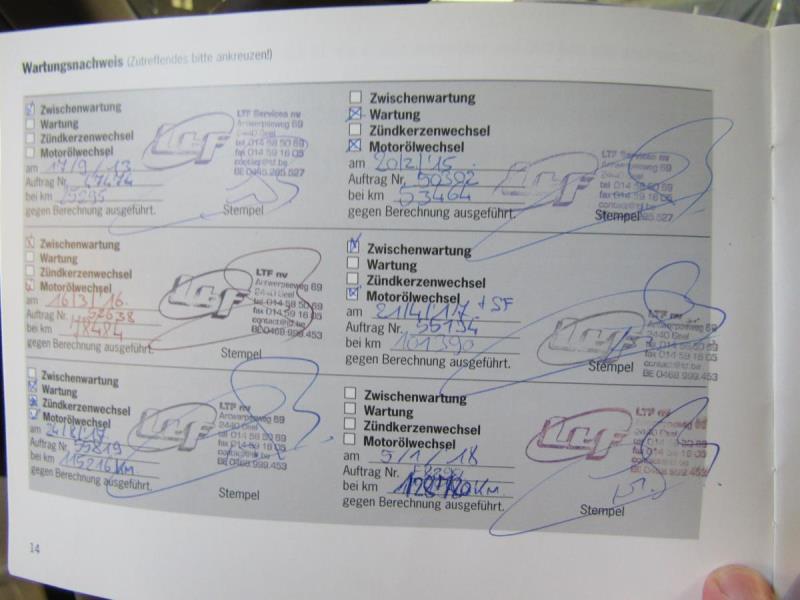 Wartungsnachweis (Zutreffendes bitte ankreuzen!)
Zwischenwartung
Wartung
Zündkerzenwechsel
Motorölwechsel
am 17/9/13
Auftrag Nr. 47474
bei km
gegen Berechnung ausgeführt.
Stempel
LTF
LTF Services nv
Antwerpseweg 69
2440 Geel
tel 014 58 50 69
fax 014 59 16 05
contact@ltf.be
Zwischenwartung
Wartung
Zündkerzenwechsel
Motorölwechsel
am 20/2/15
Auftrag Nr. 50392
bei km 53464
gegen Berechnung ausgeführt.
Stempel
LTF
LTF Services nv
Antwerpseweg 69
2440 Geel
tel 014 58 50 69
fax 014 59 16 05
contact@ltf.be
Zwischenwartung
Wartung
Zündkerzenwechsel
Motorölwechsel
am 16/3/16
Auftrag Nr. 52638
bei km 78484
gegen Berechnung ausgeführt.
Stempel
LTF
LTF nv
Antwerpseweg 69
2440 Geel
tel 014 58 50 69
fax 014 59 16 05
contact@ltf.be
BE 0469.999.453
Zwischenwartung
Wartung
Zündkerzenwechsel
Motorölwechsel
am 21/4/17 + SF
Auftrag Nr. 55134
bei km 101390
gegen Berechnung ausgeführt.
Stempel
LTF
LTF nv
Antwerpseweg 69
2440 Geel
tel 014 58 50 69
fax 014 59 16 05
contact@ltf.be
BE 0469.999.453
Zwischenwartung
Wartung
Zündkerzenwechsel
Motorölwechsel
am 24/8/17
Auftrag Nr. 55819
bei km 115216 KM
gegen Berechnung ausgeführt.
Stempel
LTF
LTF nv
Antwerpseweg 69
2440 Geel
tel 014 58 50 69
fax 014 59 16 05
contact@ltf.be
BE 0469.999.453
Zwischenwartung
Wartung
Zündkerzenwechsel
Motorölwechsel
am 5/1/18
Auftrag Nr.
bei km KM.
gegen Berechnung ausgeführt.
Stempel
LTF
LTF nv
Antwerpseweg 69
2440 Geel
tel 014 58 50 69
fax 014 59 16 05
contact@ltf.be
BE 0469.999.453
14